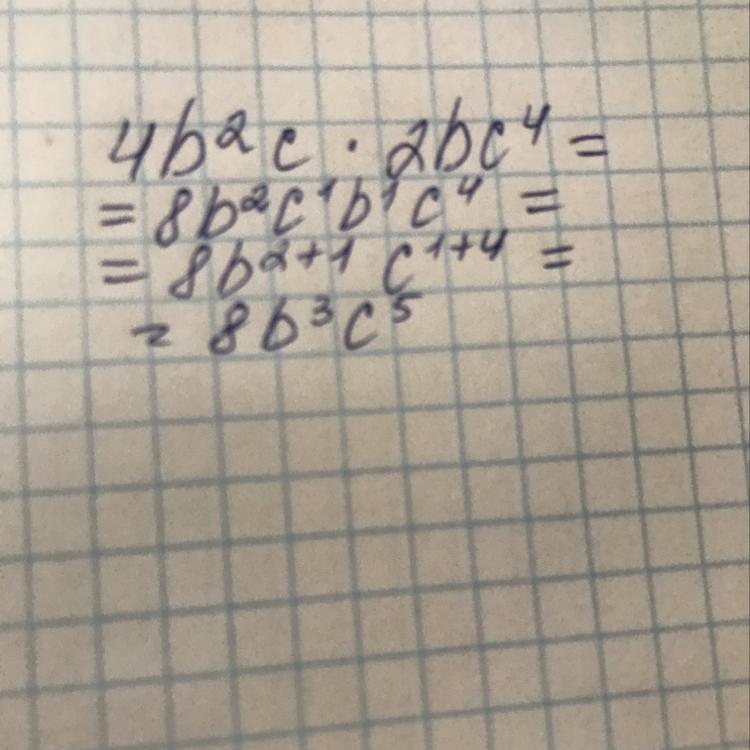 4b²c · 2bc⁴ =
= 8b²c¹b¹c⁴ =
= 8b²⁺¹ c¹⁺⁴ =
= 8b³c⁵